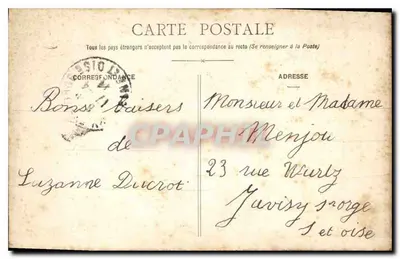 CARTE POSTALE
Tous les pays étrangers n'acceptent pas la correspondance au recto (Se renseigner à la Poste)
CORRESPONDANCE
ADRESSE
Bonse baisers
de
Suzanne Ducrot
Monsieur et Madame
Menjou
23 rue Wurtz
Juvisy s orge
S et oise
CPAPHIL